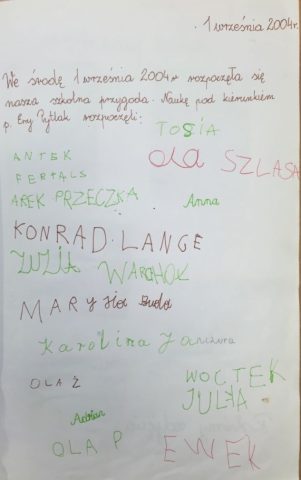 1 września 2004r.
We środę 1 września 2004r rozpoczęła się
nasza szkolna przygoda. Naukę pod kierunkiem
p. Ewy Pytlak rozpoczęli:
TOSIA
ANTEK
Ola SZLASA
FERTALS
AREK PRZECZKA
Anna
KONRAD LANGE
ZUZIA WARCHOK
MARYSIA Duda
Karolina Janczura
OLA Ż
WOCTEK
JULKA
Adrian
OLA P
EWEK